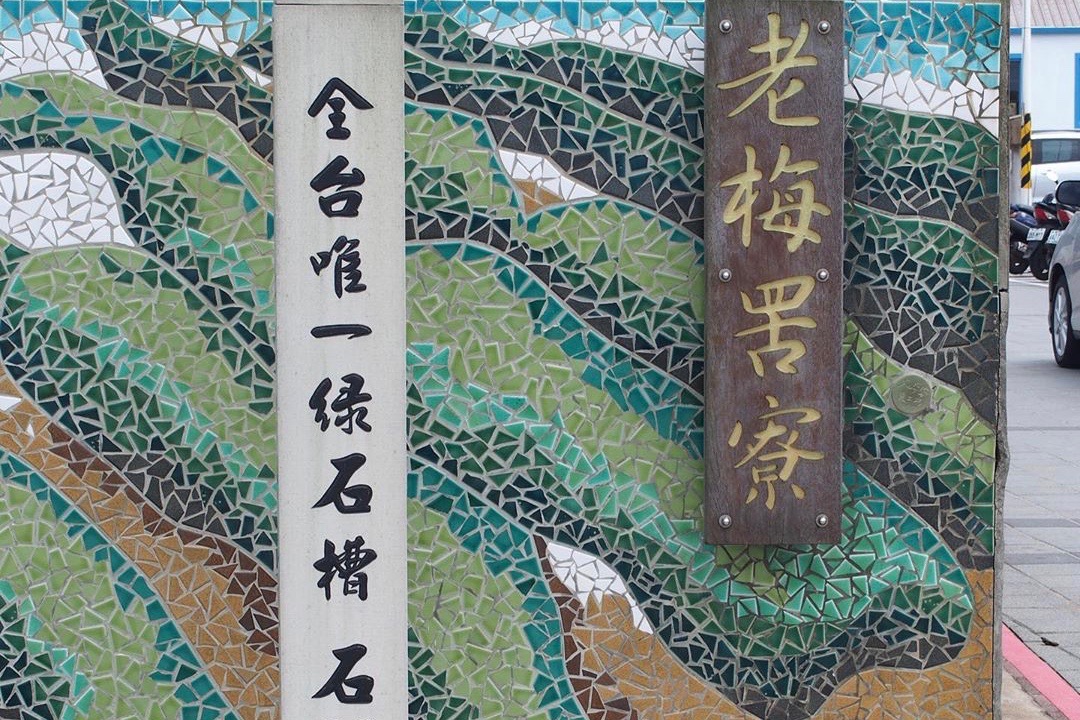 老梅罟寮
全台唯一綠石槽石